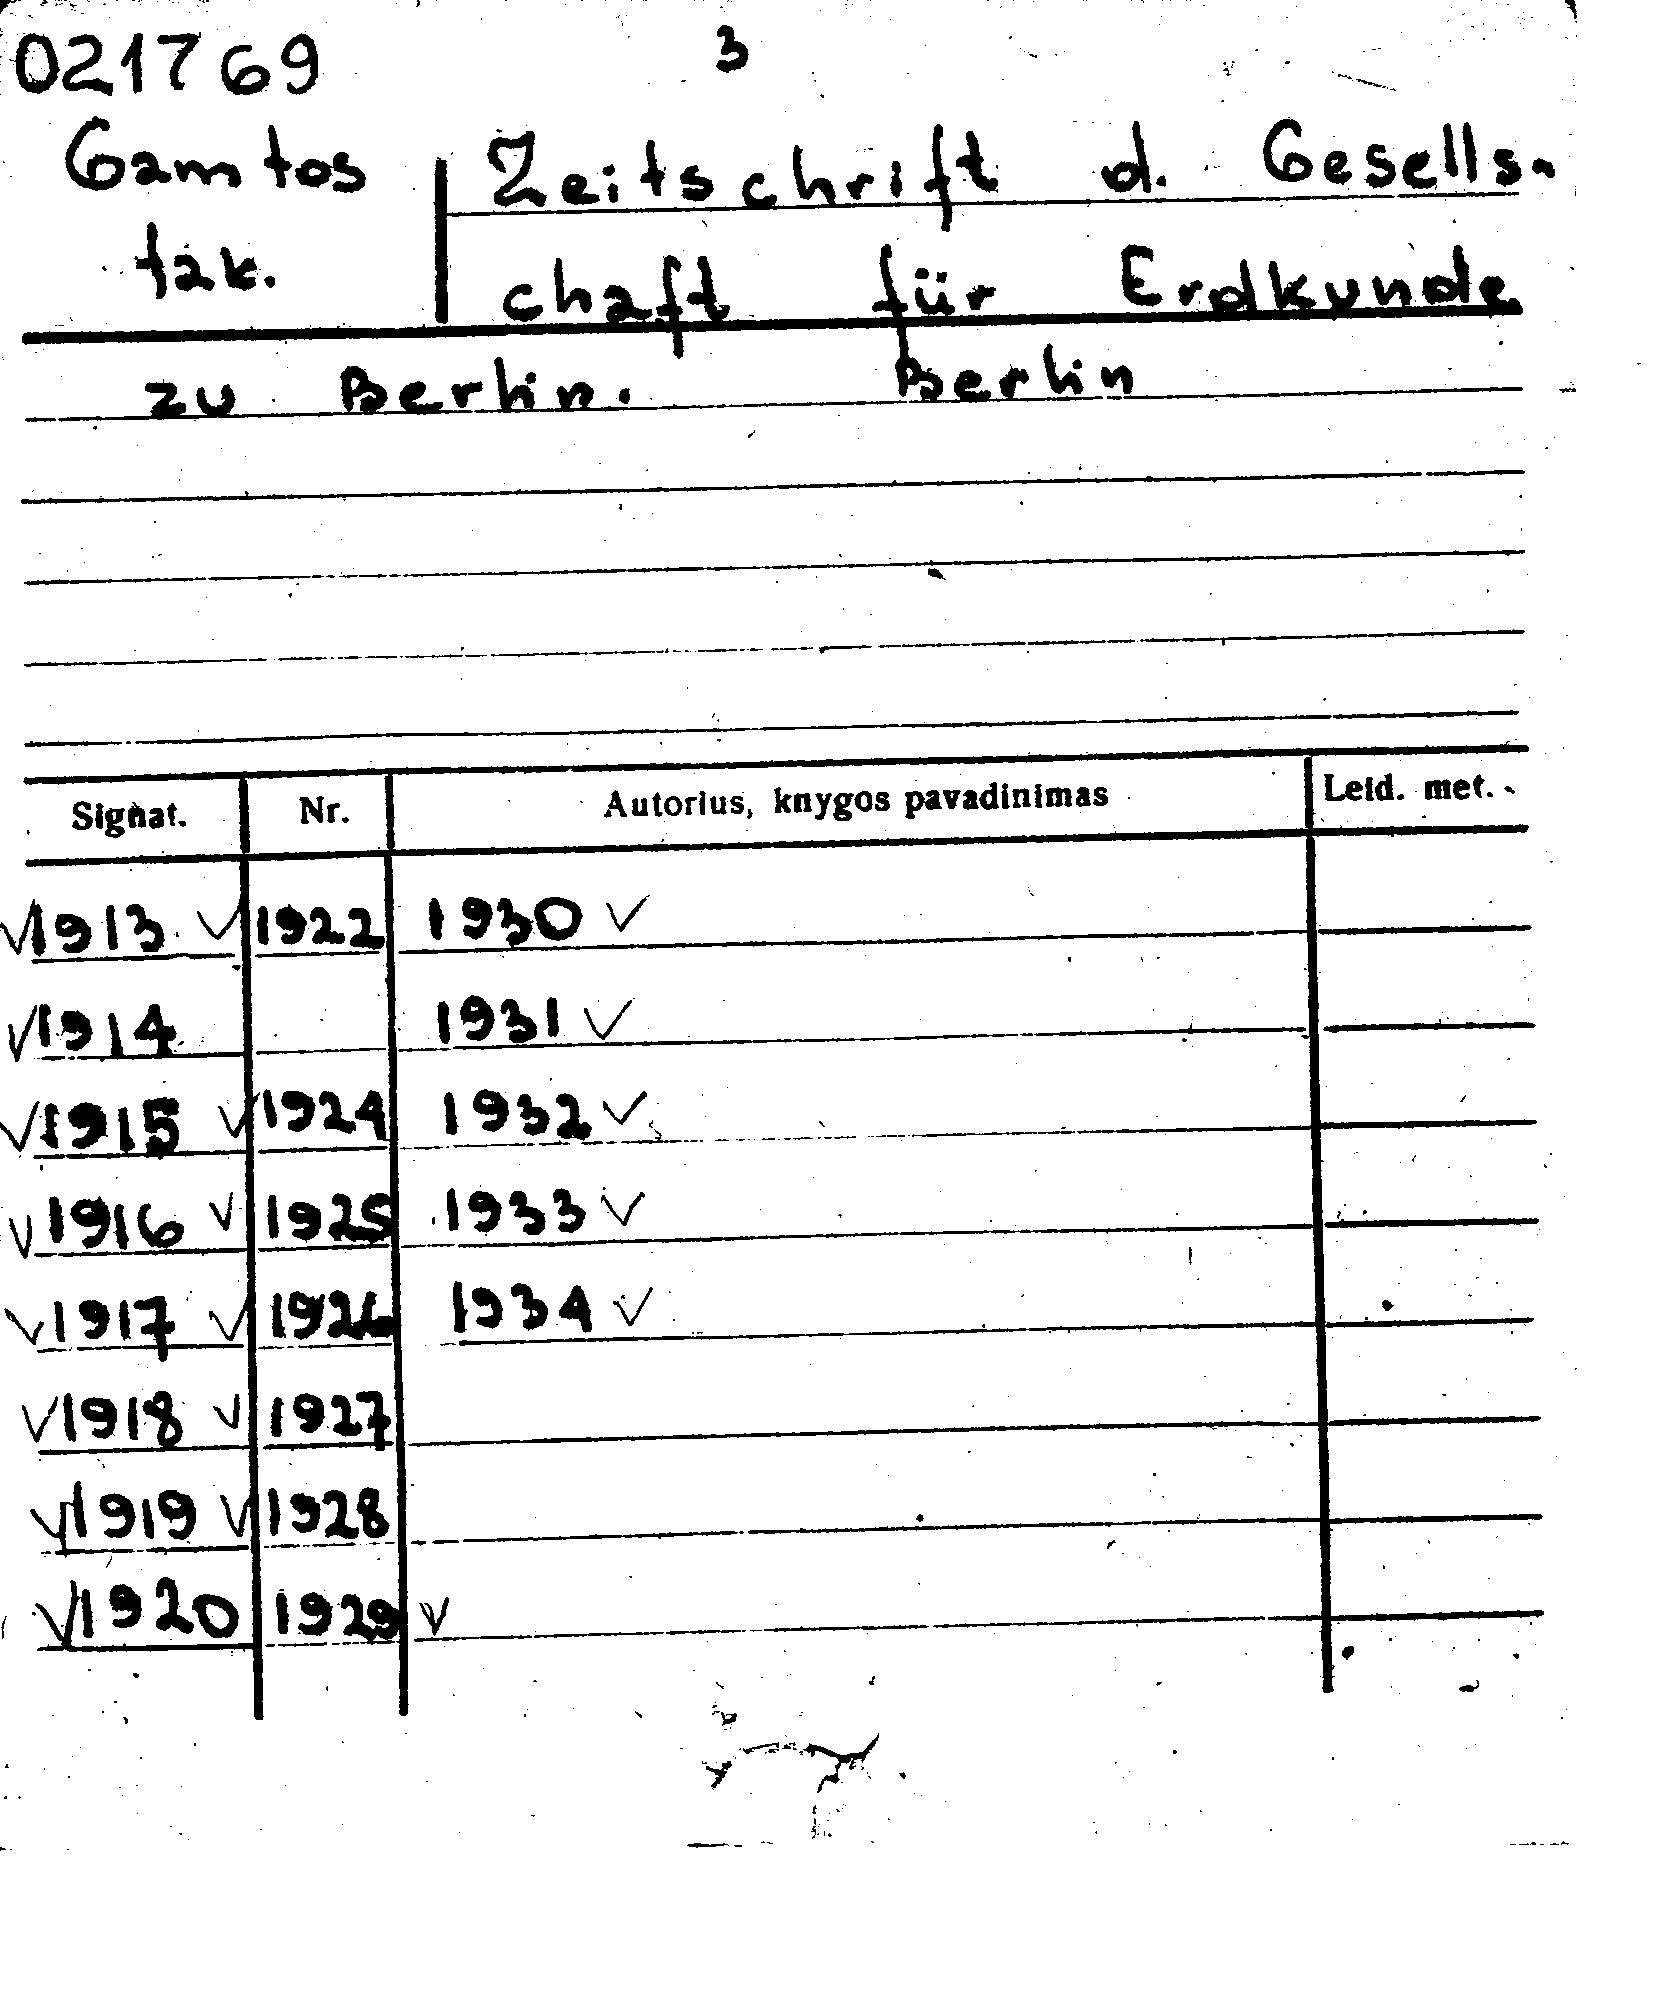 021769 3
Gamtos Zeitschrift d. Gesells-
fak. chaft für Erdkunde
zu Berlin. Berlin
Signat. Nr. Autorius, knygos pavadinimas Leid. met.
√1913 √1922 1930 √
√1914 1931 √
√1915 √1924 1932 √
√1916 √1925 1933 √
√1917 √1926 1934 √
√1918 √1927
√1919 √1928
√1920 1929 √